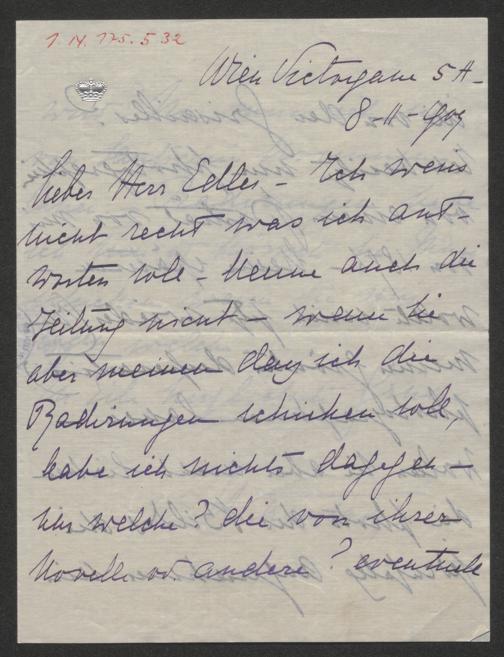 1. N. 175.532
Wien Victorgasse 5A-
8-II-909
lieber Herr Edler - Ich weis
nicht recht was ich ant-
worten soll, kenne auch die
Zeitung nicht - wenn Sie
aber meinen dass ich die
Radirungen schicken soll,
habe ich nichts dagegen -
nur welche? die von ihrer
Novelle od. andere? eventuele